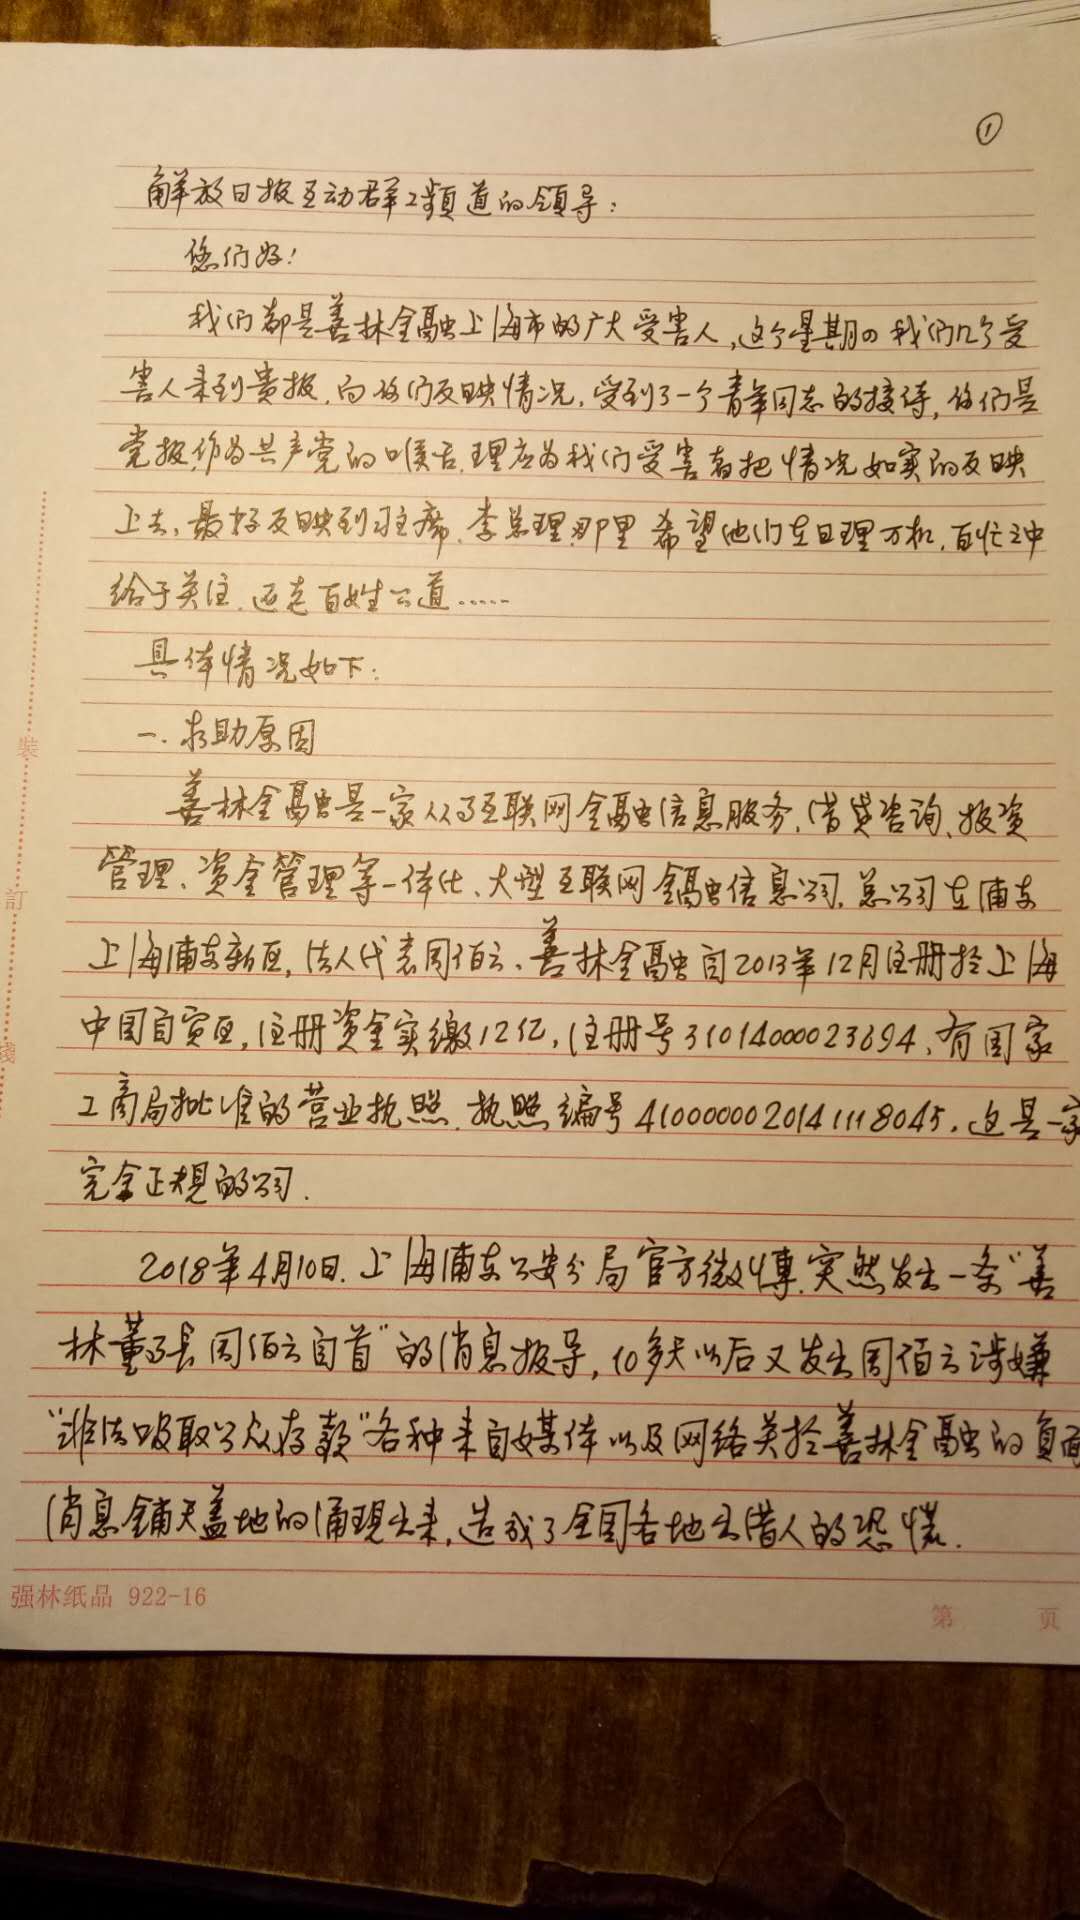 ①
解放日报互动群工频道的领导：
您们好！
我们都是善林金融上海市的广大受害人，这个星期四我们几个受
害人来到贵报，向您们反映情况，受到了一个青年同志的接待，您们是
党报，作为共产党的喉舌，理应为我们受害者把情况如实的反映
上去，最好反映到习主席、李总理那里 希望他们在日理万机，百忙之中
给于关注，还老百姓公道……
具体情况如下：
一、求助原因
善林金融是一家从事互联网金融信息服务、借贷咨询、投资
管理、资金管理等一体化、大型互联网金融信息公司，总公司在浦东
上海浦东新区，法人代表周伯云、善林金融自2013年12月注册于上海
中国自贸区，注册资金实缴12亿，注册号31014000023694、有国家
工商局批准的营业执照，执照编号4100000020141118045，这是一家
完全正规的公司．
2018年4月10日，上海浦东公安分局官方微博，突然发出一条“善
林董事长周伯云自首”的消息报导，10多天以后又发出周伯云涉嫌
“非法吸取公众存款”各种来自媒体以及网络关于善林金融的负面
消息铺天盖地的涌现出来，造成了全国各地出借人的恐慌．
装
訂
綫
强林纸品 922-16
第 页